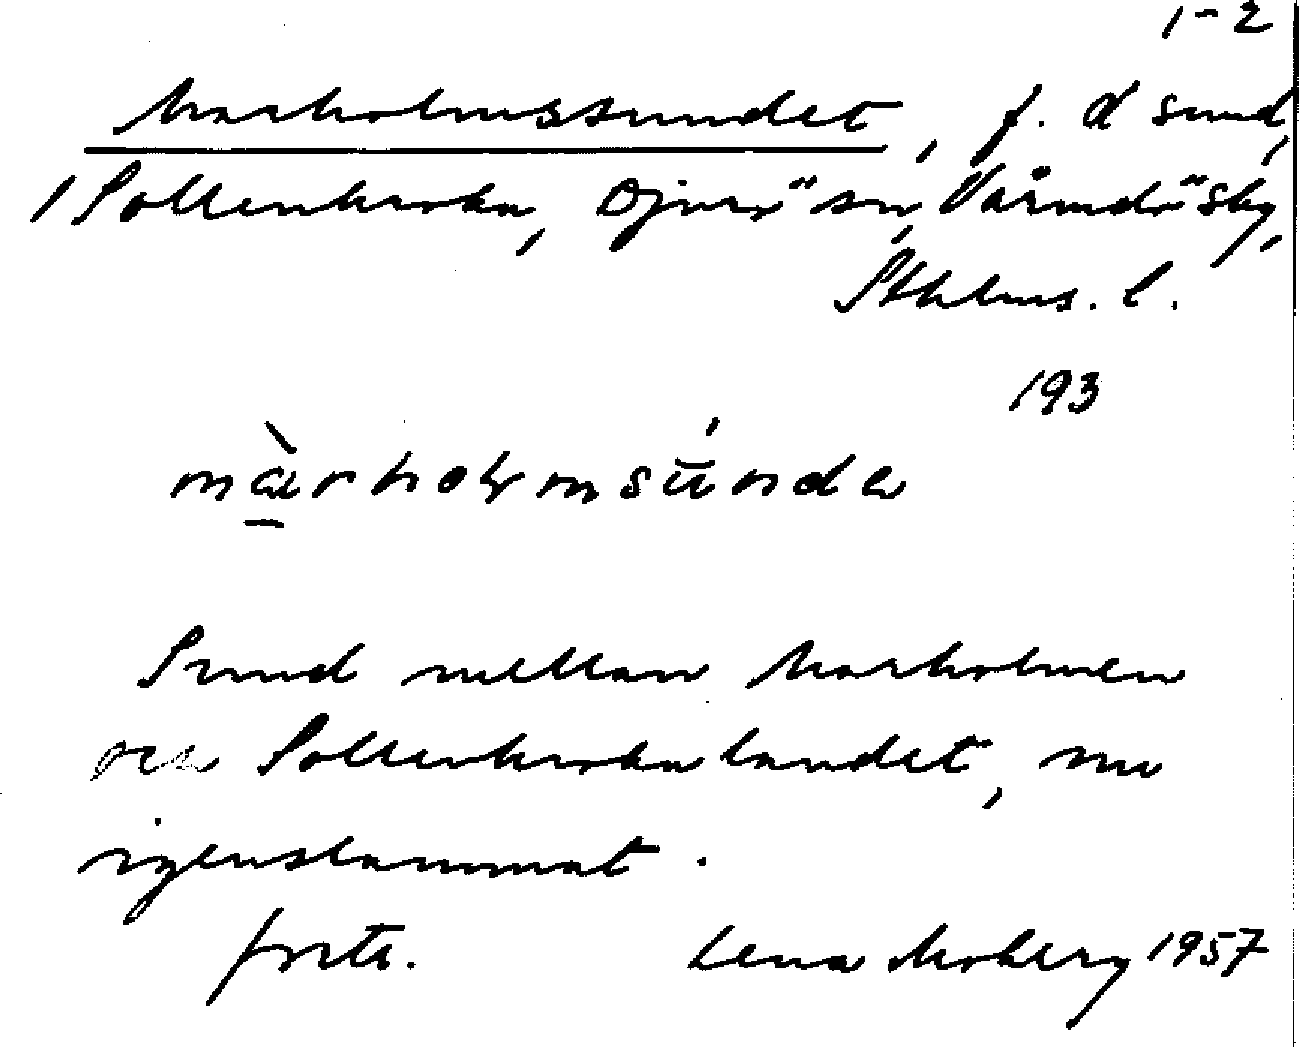 1-2
Marholmssundet, f. d sund,
/ Sollenkroka, Djurö sn, Värmdö skg,
Sthlms. l.
193
Sund mellan Marholmen
och Sollenkrokalandet, nu
igenslammat.
forts. Lena Moberg 1957